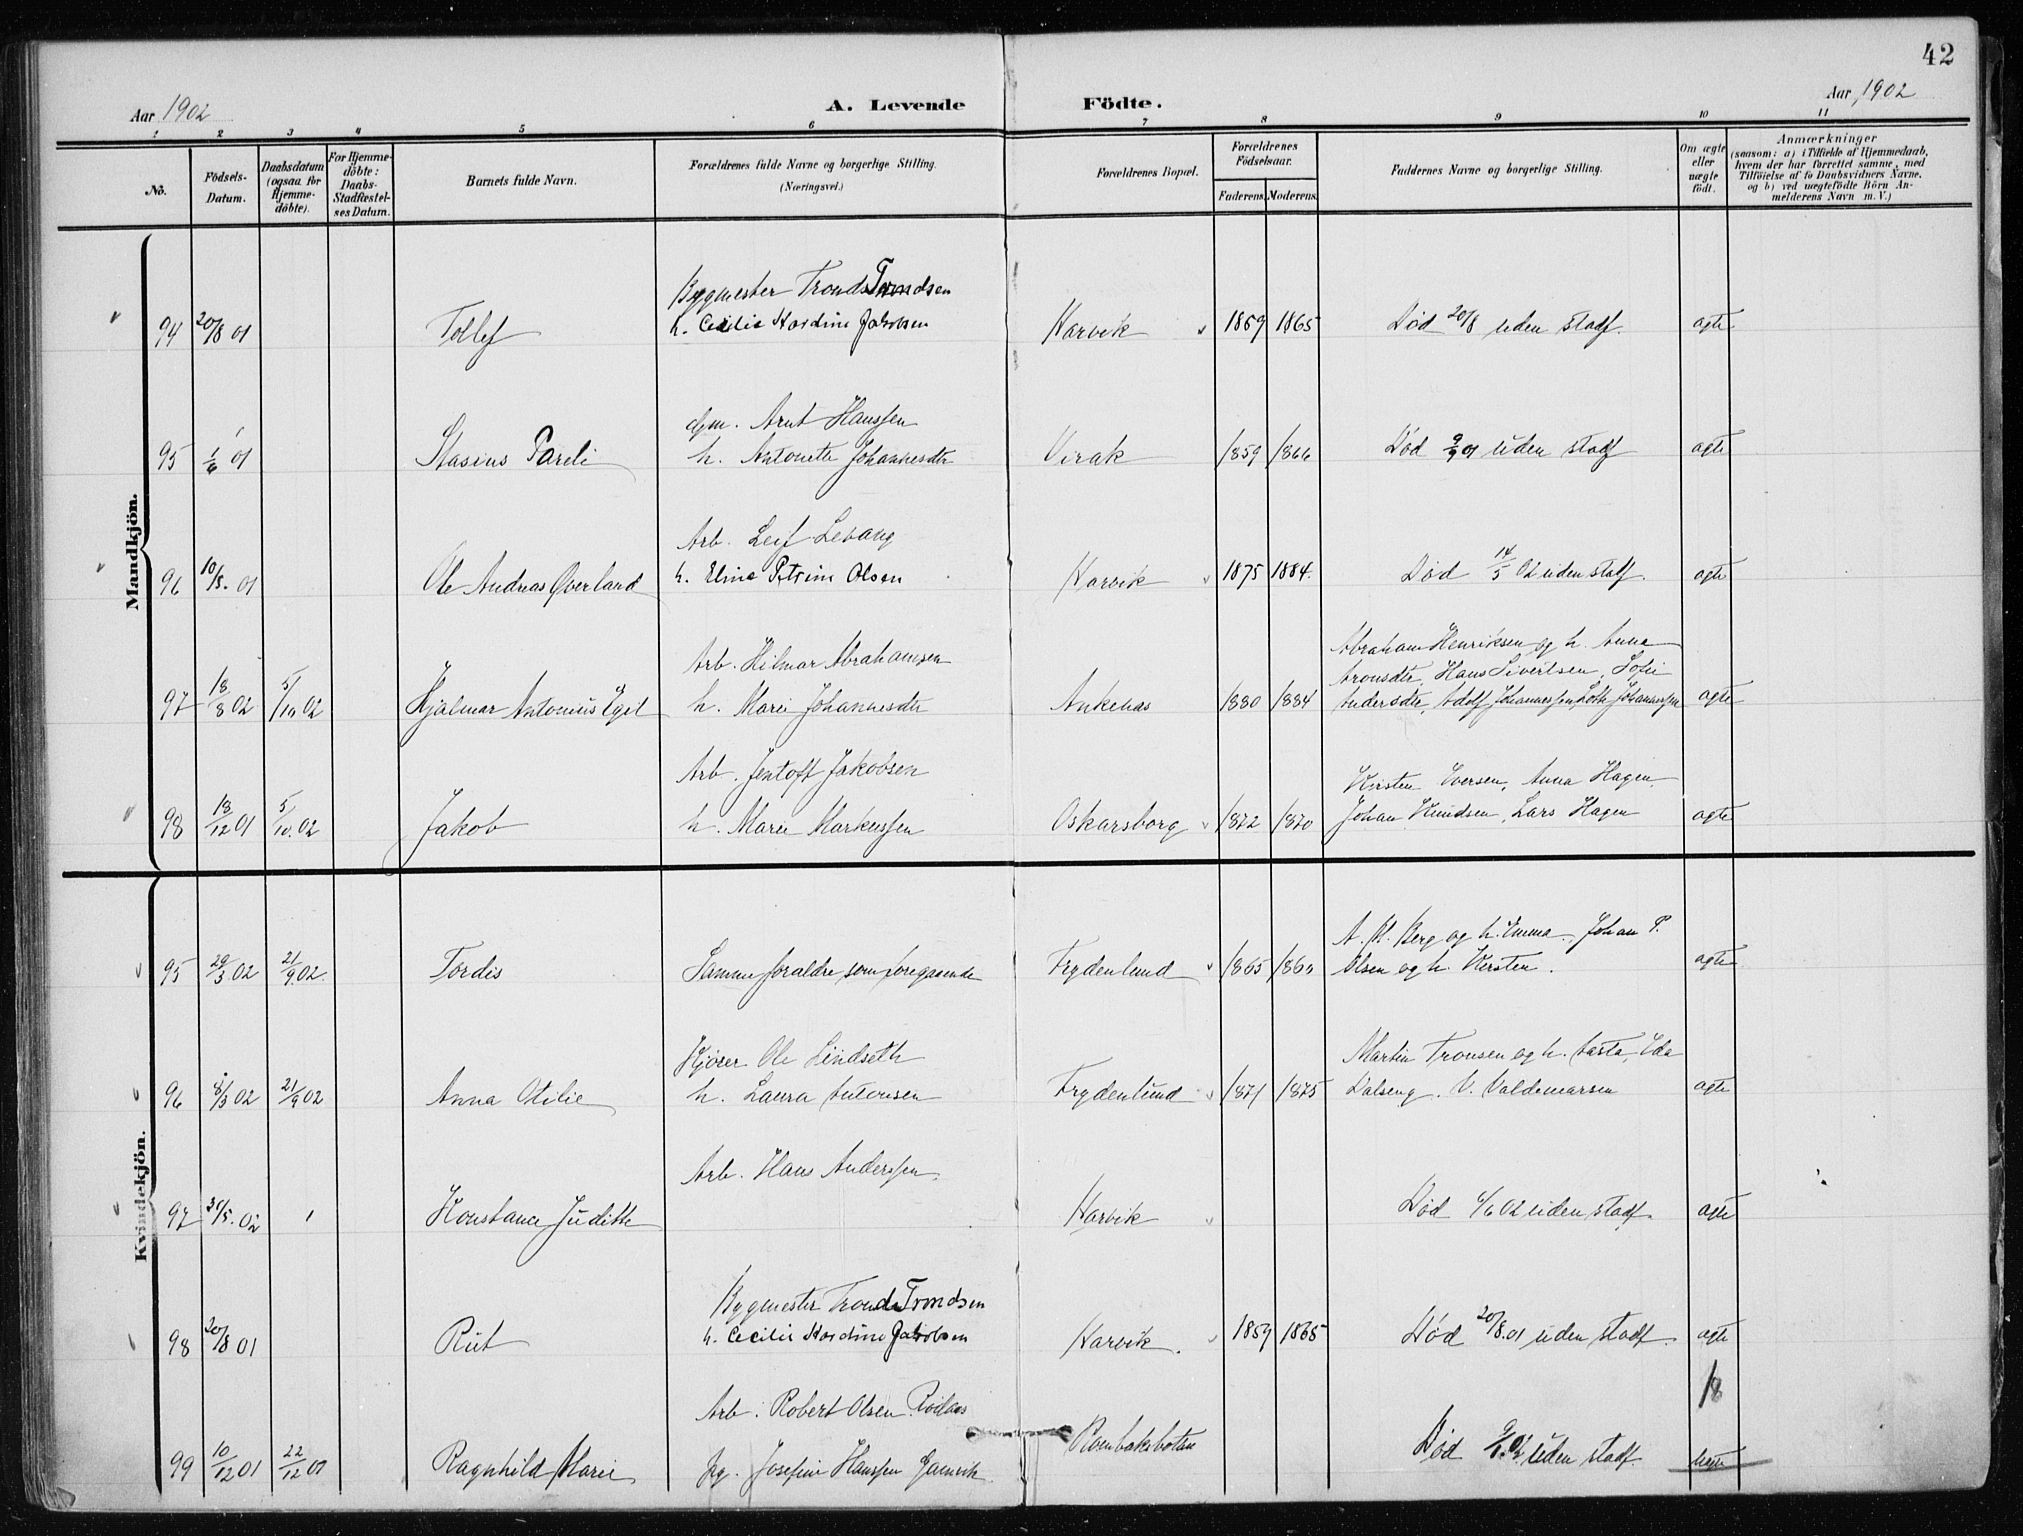 42
Aar 1902
A. Levende Födte.
Aar 1902
1 2 3 4 5 6 7 8 9 10 11
No.
Födsels-
Datum.
Daabsdatum
(ogsaa for
Hjemme-
döbte).
For Hjemme-
döbte:
Daabs-
Stadfæstel-
ses Datum.
Barnets fulde Navn.
Forældrenes fulde Navne og borgerlige Stilling.
(Næringsvei.)
Forældrenes Bopæl.
Forældrenes
Födselsaar.
Faderens. Moderens.
Faddernes Navne og borgerlige Stilling.
Om ægte
eller
uægte
födt.
Anmærkninger
(saasom: a) i Tilfælde af Hjemmedaab,
hvem der har forrettet samme, med
Tilföielse af to Daabsvidners Navne.
og b) ved uægtefödte Börn An-
melderens Navn m. V.)
Mandkjön.
Bygmester Trond Trondsen
94 20/8 01 Tollef h. Cecilie Hardine Jakobsen Narvik 1859 1865 Död 20/8 uden stadf. ægte
Arnt Hanssen
95 1/6 01 Stasius Pareli h. Antonette Johannesdtr Virak 1859 1866 Död 01 uden stadf ægte
Arb. Leif Lebang
96 10/5. 01 Ole Andreas Överland h. Eline Petrine Olsen Narvik 1875 1884. Död 14/5 02 uden stadf. ægte
Arb. Hilmar Abrahamsen
Abraham Henriksen og h. Anna
Aronsdtr, Hans Sivertsen, Sofie
97 18/8 02 5/10 02 Hjalmar Antonius Egel h. Marie Johannesdtr Ankenas 1880 1884 Andersdtr, Adolf Johannessen, Johannessen ægte
Arb. Jentoft Jakobsen
Kirsten Iversen, Anna Hagen,
98 18/12 01 5/10.02 Jakob h. Marie Markussen Oskarsborg 1872 1870 Johan Knudsen, Lars Hagen ægte
Kvindekjön.
A. M. Berg og h. Emma, Johan P.
95 29/3 02 21/9 02. Tordis Samme foraldre som foregaaende Frydenlund 1865 Olsen og h. Kersten. ægte
Kjører Ole Lindseth
Martin Tronsen og h. Ida
96 8/3 02 21/9 02 Anna Otilie h. Laura Antonsen Frydenlund 1871 1875 Dalseng. V. Valdemarsen ægte
Arb. Hans Anderssen.
97 31/5. 02 Konstance Judithe Narvik Död 02 uden stadf. ægte
Bygmester Trond Trondsen
98 20/8 01 Rut h. Cecilie Hardine Jakobsen Narvik. 1859 1865 Död 20/8.01 uden stadf. ægte
18
Arb. Robert Olsen
99 10/12 01 22/12 01 Ragnhild Marie pg. Josefine Hanssen Gamvik Rombaksbotn Död uden stadf. uægte